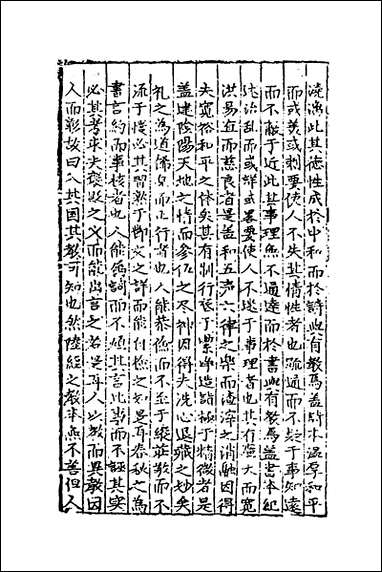 澆漓此其德性成於中和而於詩與有教焉蓋詩本溫厚和平
而或美或刺要使人不失其情性者也疏通而不疑于事知遠
而不蔽于近此其事理無不通達而於書與有教焉蓋書本紀
治亂而或詳或畧要使人不迷于事理者也其有廣大而寬
洪易直而慈良者是蓋和五聲六律之樂而渣滓之消融因得
夫寬裕和平之体矣其有制行于潔造詣極于精微者是
蓋建陰陽天地之情而參伍之尽神因得夫洗心退藏之妙矣
礼之為道脩身而正行者也人能恭儉而不至于縱莊敬而不
流于慢必其習熟于文之詳而能檢之如是耳春秋之為
書言約而事核者也人能無詞而不煩其言比當而不誣其實
必其考求夫褒貶之文而能出言之若是耳人以教而異教因
人而彰故曰入其国其教可知也然陸經之教本無不善但人